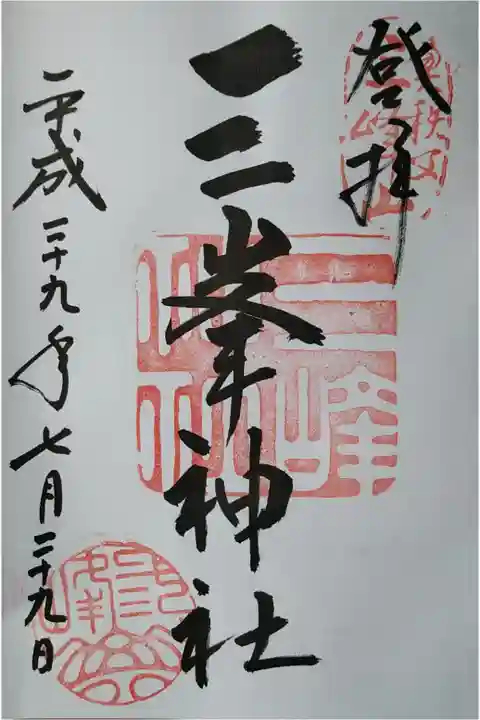 登拝
奥秩父
三峰山
三峯神社
三峰
神社
平成二十九年七月二十九日